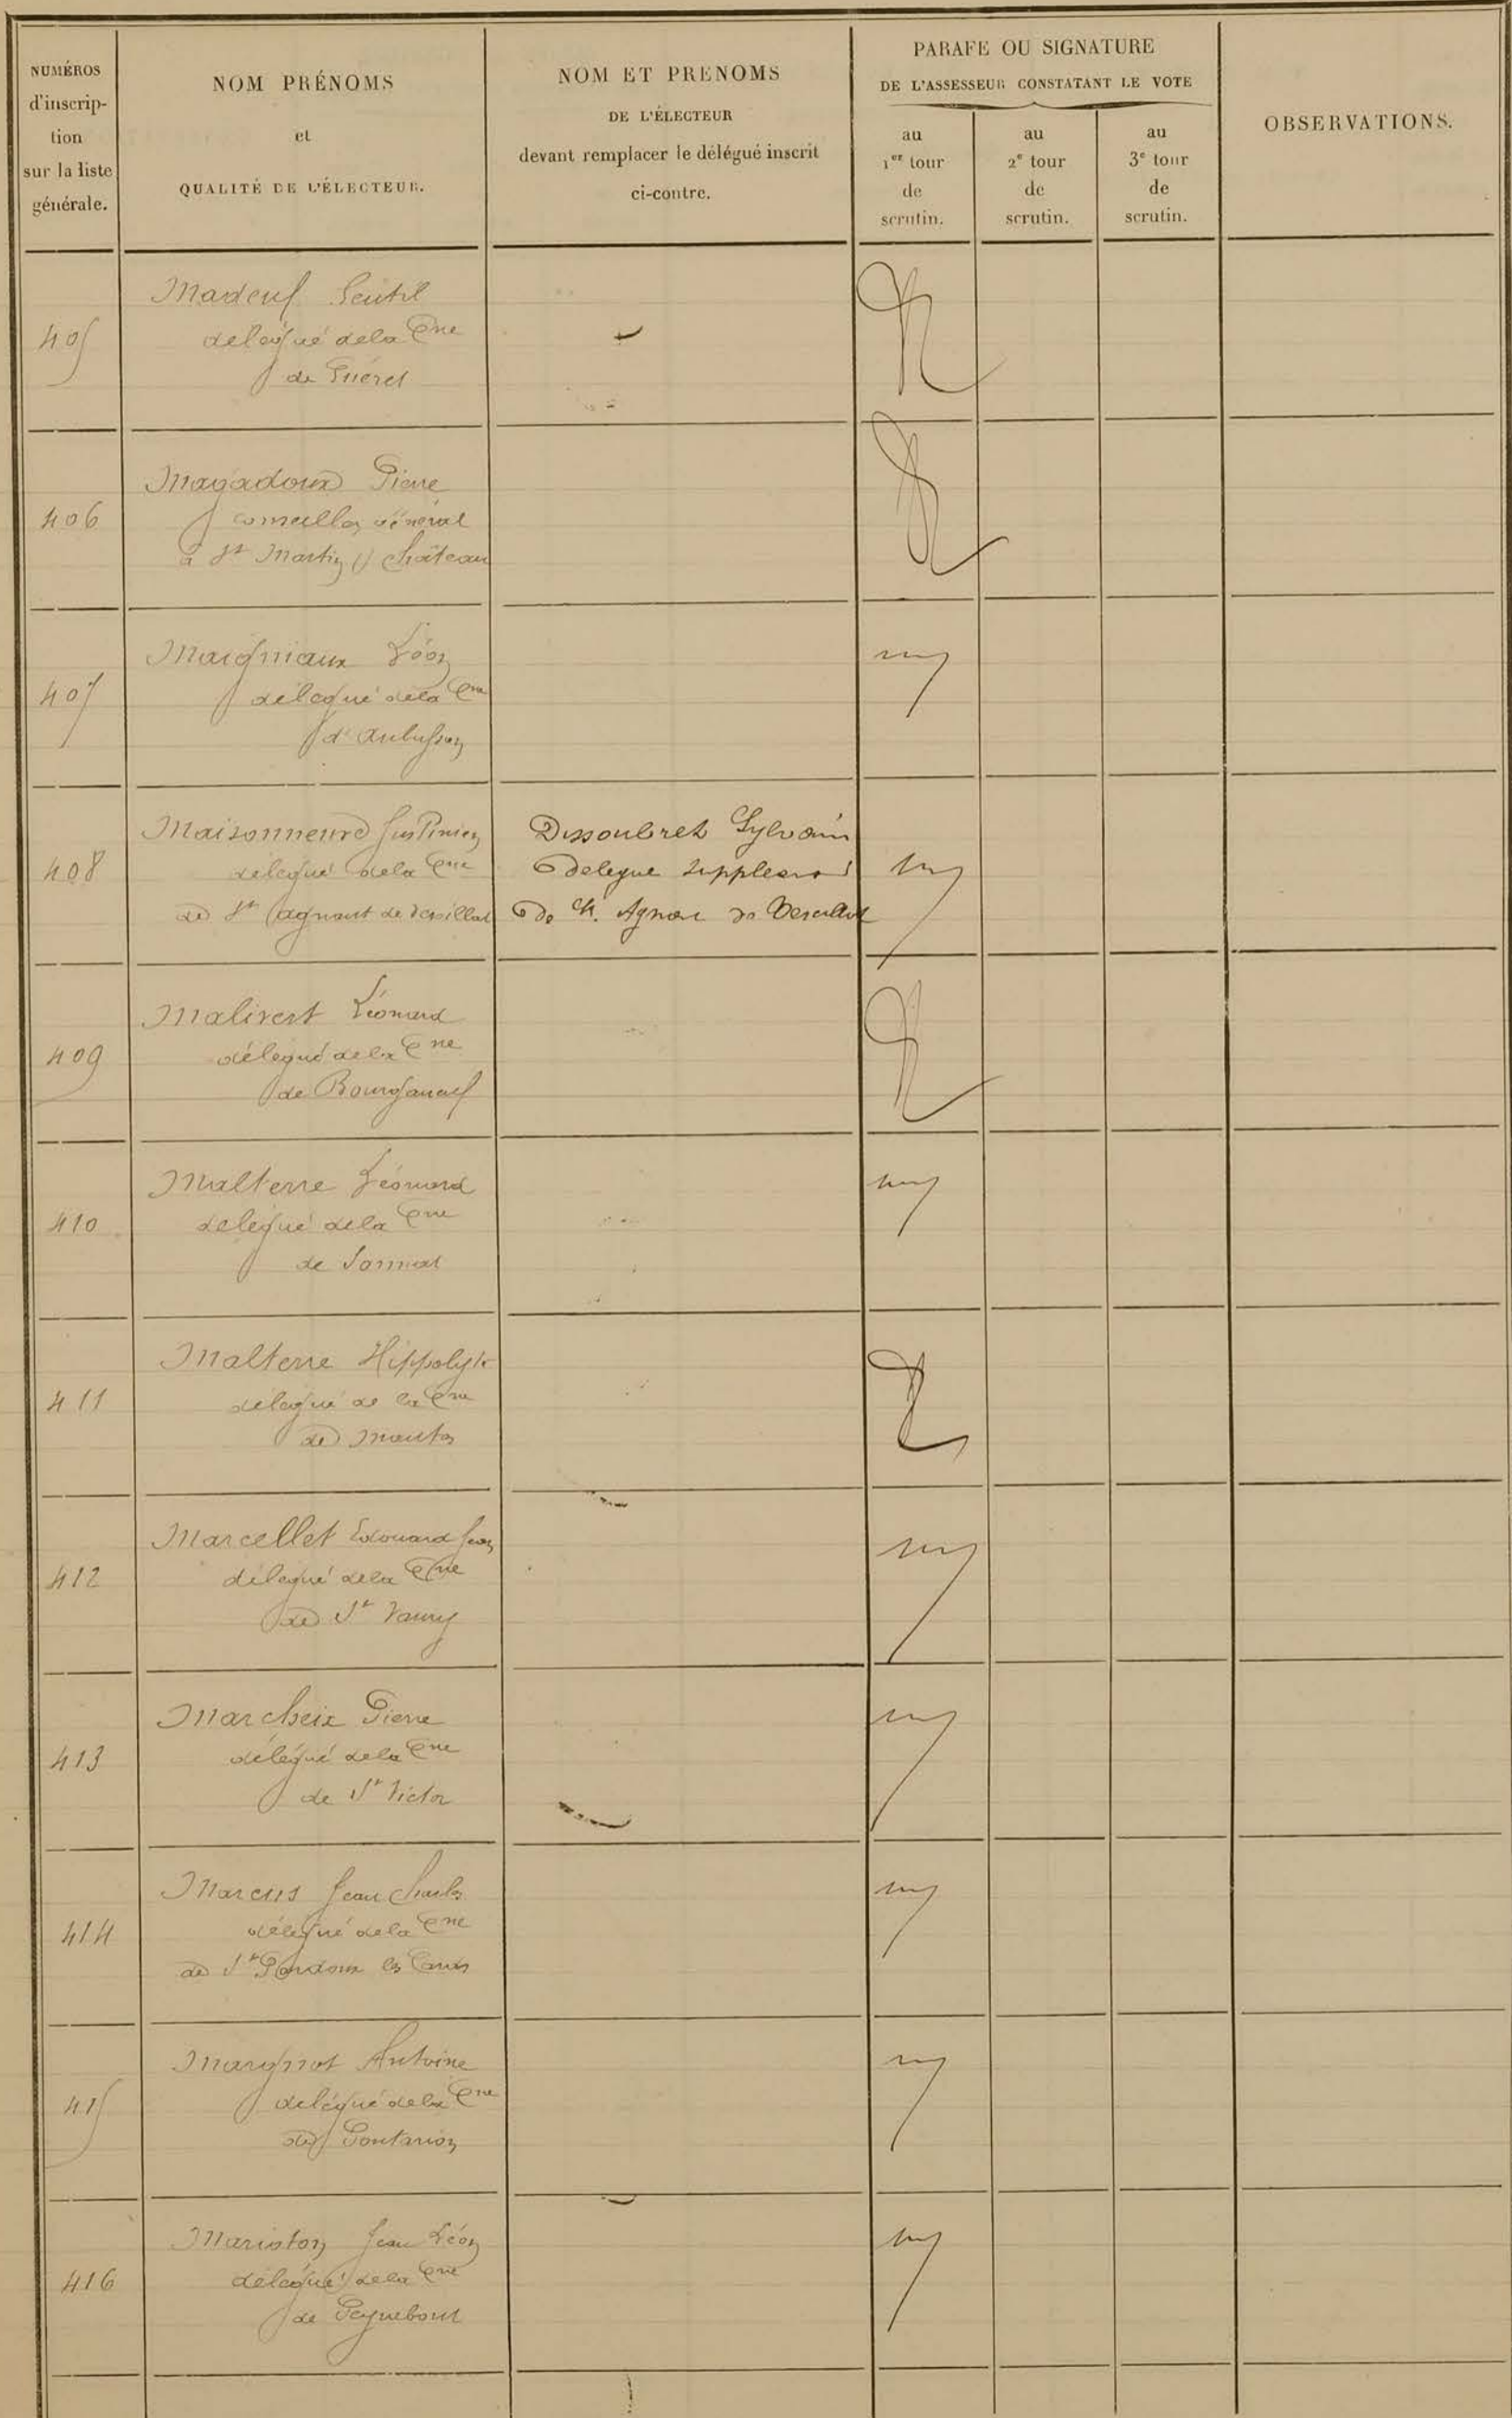 NUMÉROS
d'inscrip-
tion
sur la liste
générale.
NOM PRÉNOMS
et
QUALITÉ DE L'ÉLECTEUR.
NOM ET PRENOMS
DE L'ÉLECTEUR
devant remplacer le délégué inscrit
ci-contre.
PARAFE OU SIGNATURE
DE L'ASSESSEUR CONSTATANT LE VOTE
au
1er tour
de
scrutin.
au
2e tour
de
scrutin.
au
3e tour
de
scrutin.
OBSERVATIONS.
405
Madeuf Gentil
délégué de la Cne
de Guéret
406
Magadoux Pierre
conseiller général
à St Martin Château
407
Maigniaux Léon
délégué de la Cne
d'Aubusson
408
Maisonneuve Justinien
délégué de la Cne
de St Agnant de Versillat
Sylvain
Delegue
de St. Agnan de Versillat
409
Malivert Léonard
délégué de la Cne
de Bourganeuf
410
Malterre Léonard
délégué de la Cne
de
411
Malterre Hippolyte
délégué de la Cne
de Mautes
412
Marcellet Edouard Jean
délégué de la Cne
de St Vaury
413
Marcheix Pierre
délégué de la Cne
de St Victor
414
Marcus Jean Charles
délégué de la Cne
de St Pardoux les Cards
415
Margnot Antoine
délégué de la Cne
de Pontarion
416
Mariston Jean Léon
délégué de la Cne
de Peyrabout